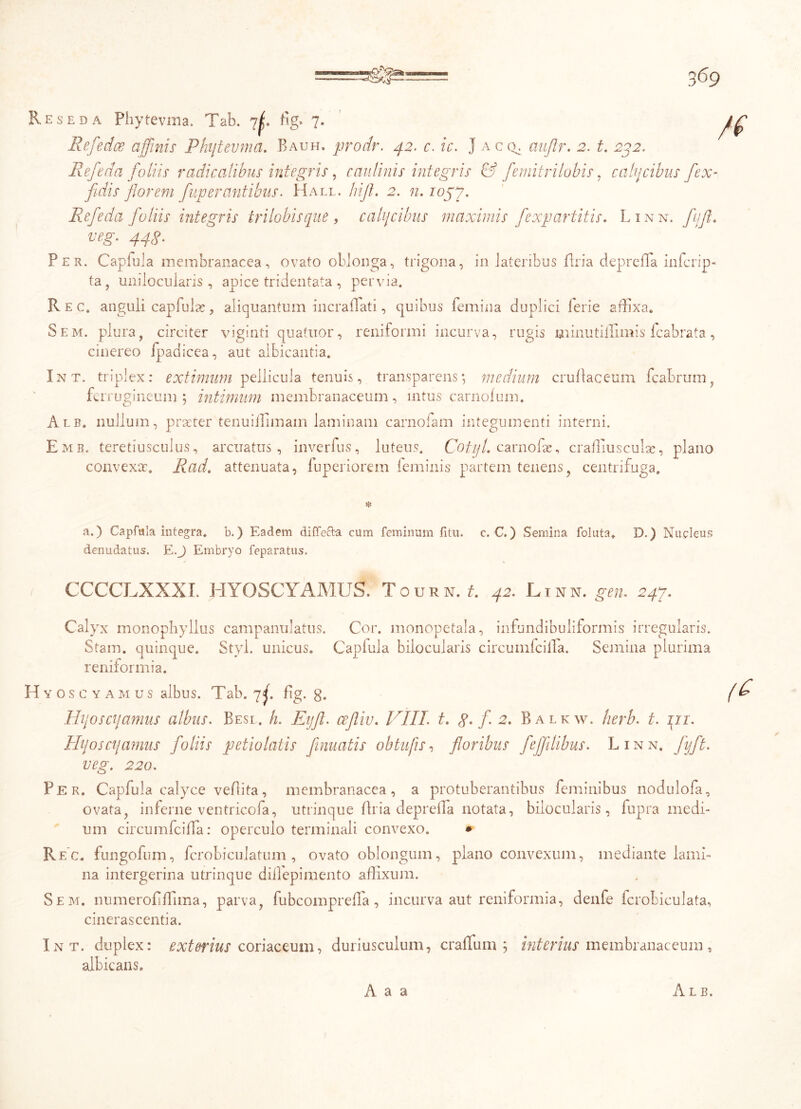 369
Reseda Phytevma. Tab. 7f. fig. 7.
Reſedæ affinis Phytevma. Bauh. prodr. 42. c. ic. Jacq. auſtr. 2. t. 232.
Reſeda foliis radicalibus integris, caulinis integris & ſemitrilobis, calycibus ſex-
fidis florem ſuperantibus. Hall. hiſt. 2. n. 1057.
Reſeda foliis integris trilobisque, calycibus maximis ſexpartitis. Linn. ſyſt.
veg. 448.
Per. Capſula membranacea, ovato oblonga, trigona, in lateribus ſtria depreſſa inſcrip-
ta, unilocularis, apice tridentata, pervia.
Rec. anguli capſulæ, aliquantum incraſſati, quibus ſemina duplici ſerie affixa.
Sem. plura, circiter viginti quatuor, reniformi incurva, rugis minutiſſimis ſcabrata,
cinereo ſpadicea, aut albicantia.
Int. triplex: extimum pellicula tenuis, transparens; medium cruſtaceum ſcabrum,
ferrugineum; intimum membranaceum, intus carnoſum.
Alb. nullum, præter tenuiſſimam laminam carnoſam integumenti interni.
Emb. teretiusculus, arcuatus, inverſus, luteus. Cotyl. carnoſæ, craſſiusculæ, plano
convexæ. Rad. attenuata, ſuperiorem ſeminis partem tenens, centrifuga.
*
a.) Capſula integra. b.) Eadem diſſecta cum ſeminum ſitu. c. C.) Semina ſoluta. D.) Nucleus
denudatus. E.) Embryo ſeparatus.
CCCCLXXXI. HYOSCYAMUS. Tourn. t. 42. Linn. gen. 247.
Calyx monophyllus campanulatus. Cor. monopetala, infundibuliformis irregularis.
Stam. quinque. Styl. unicus. Capſula bilocularis circumſciſſa. Semina plurima
reniformia.
Hyoscyamus albus. Tab. 7f. fig. 8.
Hyoscyamus albus. Besl. h. Eyſt. æſtiv. VIII. t. 8. f. 2. Balkw. herb. t. 111.
Hyoscyamus foliis petiolatis ſinuatis obtuſis, floribus ſeſſilibus. Linn. ſyſt.
veg. 220.
Per. Capſula calyce veſtita, membranacea, a protuberantibus ſeminibus noduloſa,
ovata, inferne ventricoſa, utrinque ſtria depreſſa notata, bilocularis, ſupra medi-
um circumſciſſa: operculo terminali convexo.
Rec. fungoſum, ſcrobiculatum, ovato oblongum, plano convexum, mediante lami-
na intergerina utrinque diſſepimento affixum.
Sem. numeroſiſſima, parva, ſubcompreſſa, incurva aut reniformia, denſe ſcrobiculata,
cinerascentia.
Int. duplex: exterius coriaceum, duriusculum, craſſum; interius membranaceum,
albicans.
A a a Alb.